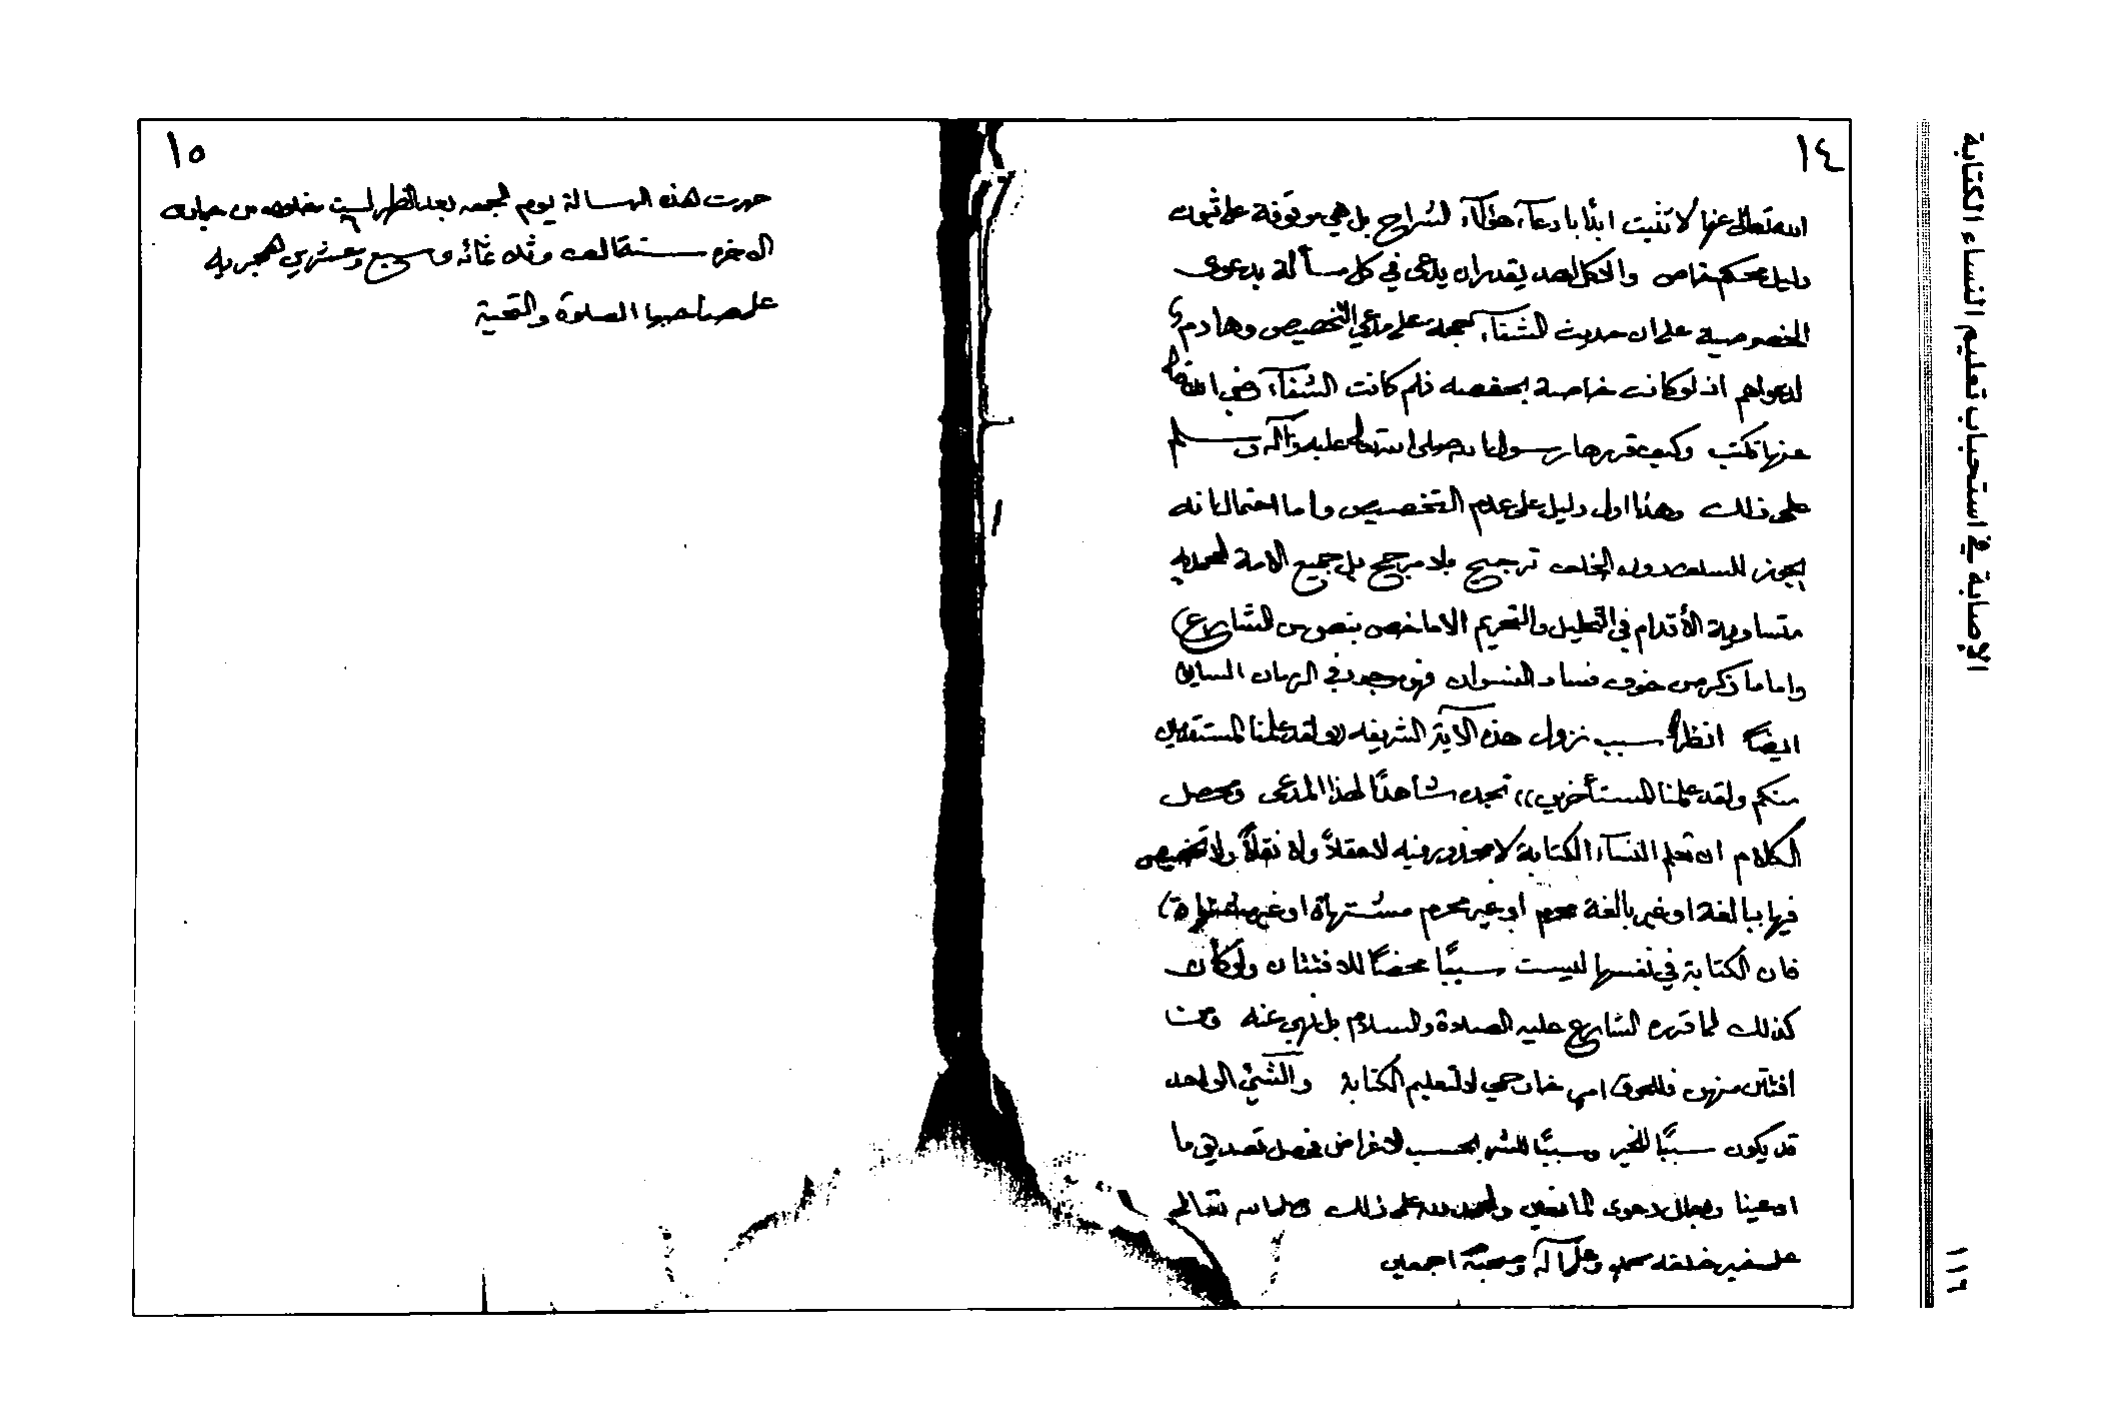 الإصابة في استحباب تعليم النساء الكتابة
١١٦
١٤
الله تعالى عنها لا تثبت ابدًا بادعاء هؤلاء الشراح بل هي موقوفة على ثبوت
دليل محكم خاص والا كل احد يقدر ان يدعى في كل مسألة بدعوى
الخصوصية على ان حديث الشفاء حجة على مدعي التخصيص وهادم
لدعواهم انه لو كانت خاصة بحفصه فلم كانت الشفآء رضي الله تعالى
عنها تكتب وكيف قررها رسول الله صلى الله تعالى عليه وآله وسلم
على ذلك وهذا اول دليل على عدم التخصيص واما احتمال انه
يجوز للسلف دون الخلف ترجيح بلا مرجح بل جميع الامة المحمديه
متساوية الأقدام في التحليل والتحريم الا ما خص بنصوص الشارع
واما ما ذكر من خوف فساد النسوان فهو موجود في الزمان السابق
ايضًا انظر سبب نزول هذه الآية الشريفه ولقد علمنا المستقدمين
منكم ولقد علمنا المستأخرين)) تجده شاهدًا لهذا المدعى ومحصل
الكلام ان تعلم النسآء الكتابة لا محذور فيه لا عقلاً ولا نقلاً ولا تخصيص
فيها ببالغة او غير بالغة محرم او غير محرم مشتهاة او غير مشتهاة
فان الكتابة في نفسها ليست سببًا محضًا للافتتان ولو كان
كذلك لما قرره الشارع عليه الصلاة والسلام بل نهى عنه ومن
افتتن منهن فللحوق امر خارجي لا لتعليم الكتابة والشئ الواحد
قد يكون سببًا للخير وسببًا للشر بحسب الاغراض فحصل تصديق ما
ادعينا وبطل دعوى المانعين والحمد لله على ذلك وصلى الله تعالى
على خير خلقه محمد وعلى آله وصحبه اجمعين
١٥
حررت هذه الرسالة يوم الجمعه بعد الظهر لست خلون من جمادى
الاخره سنة الف وثلاثمائه وسبع وعشرين هجريه
على صاحبها الصلوة والتحية